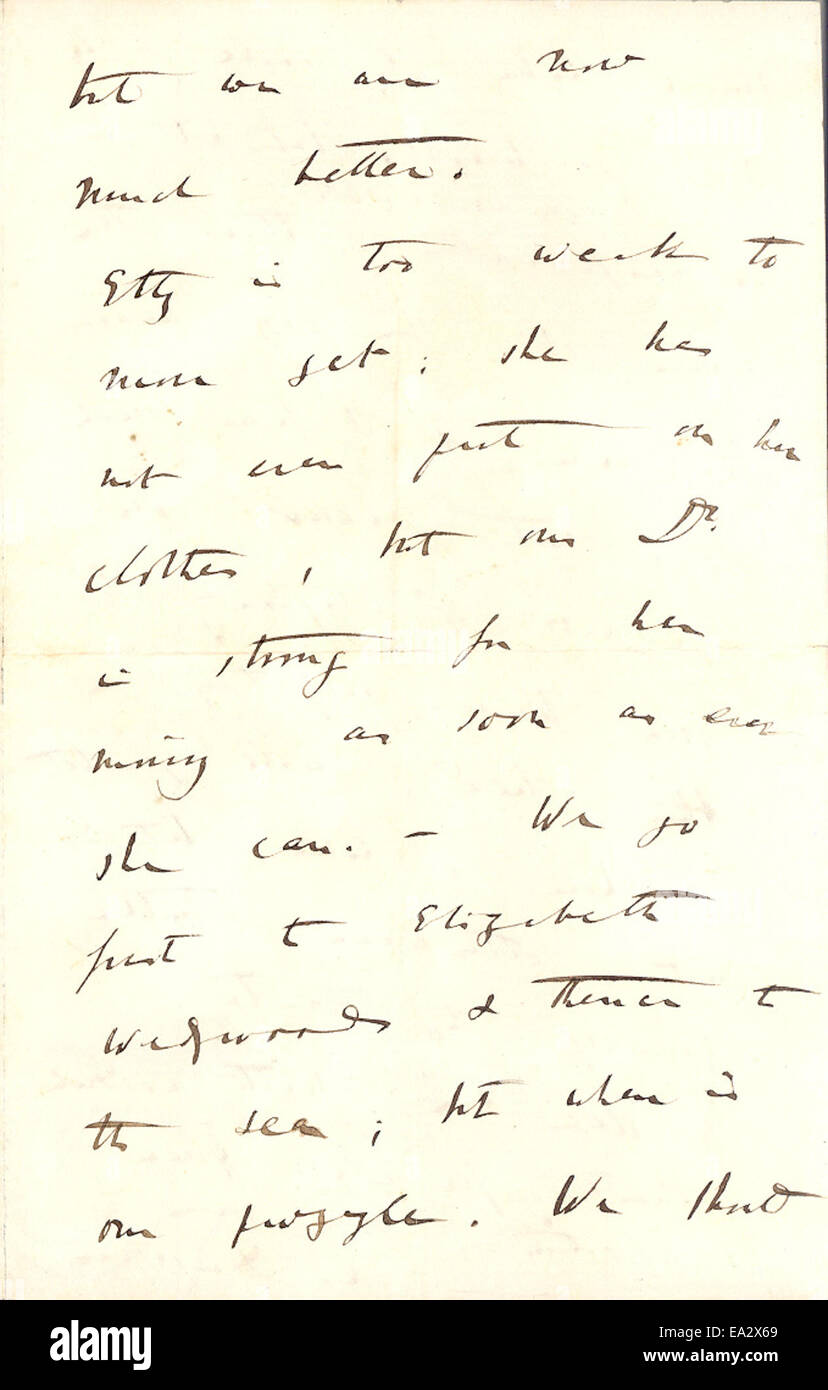 but we are now
much better.
Etty is too weak to
move yet; she has
not even put on her
clothes, but our Dr.
is strong for her
moving as soon as ever
she can. — We go
first to Elizabeth
Wedgwoods & thence to
the sea; but where is
our puzzle. We shd
alamy
Image ID: EA2X69
www.alamy.com